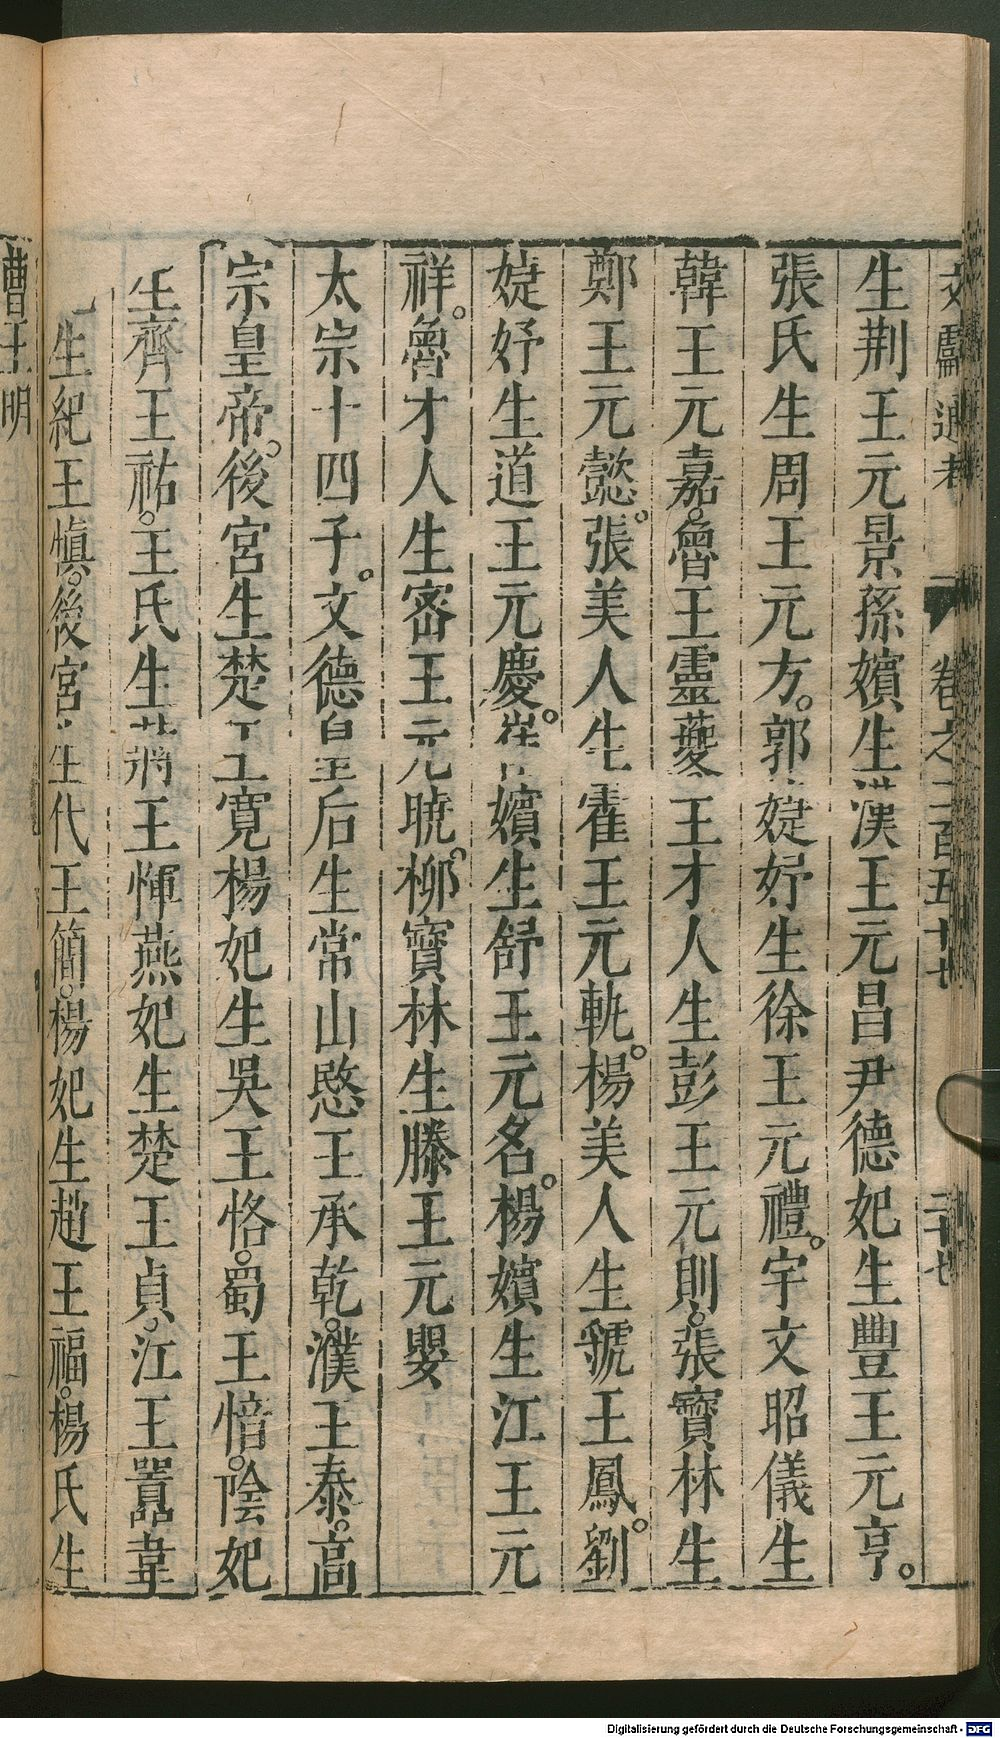 文獻通考 卷之二百五十七 二十七
生荆王元景孫嬪生漢王元昌尹德妃生豐王元亨。
張氏生周王元方。郭婕妤生徐王元禮。宇文昭儀生
韓王元嘉。魯王靈夔王才人生彭王元則。張寶林生
鄭王元懿。張美人生霍王元軌。楊美人生虢王鳳。劉
婕妤生道王元慶。崔嬪生舒王元名。楊嬪生江王元
祥。魯才人生密王元曉。柳寶林生滕王元嬰
太宗十四子。文德皇后生常山愍王承乾。濮王泰。高
宗皇帝。後宮生楚王寬楊妃生吳王恪。蜀王愔。陰妃
生齊王祐。王氏生蔣王惲燕妃生楚王貞。江王囂韋
生紀王慎。後宮生代王簡。楊妃生趙王福。楊氏生
曹王明
Digitalisierung gefördert durch die Deutsche Forschungsgemeinschaft - DFG